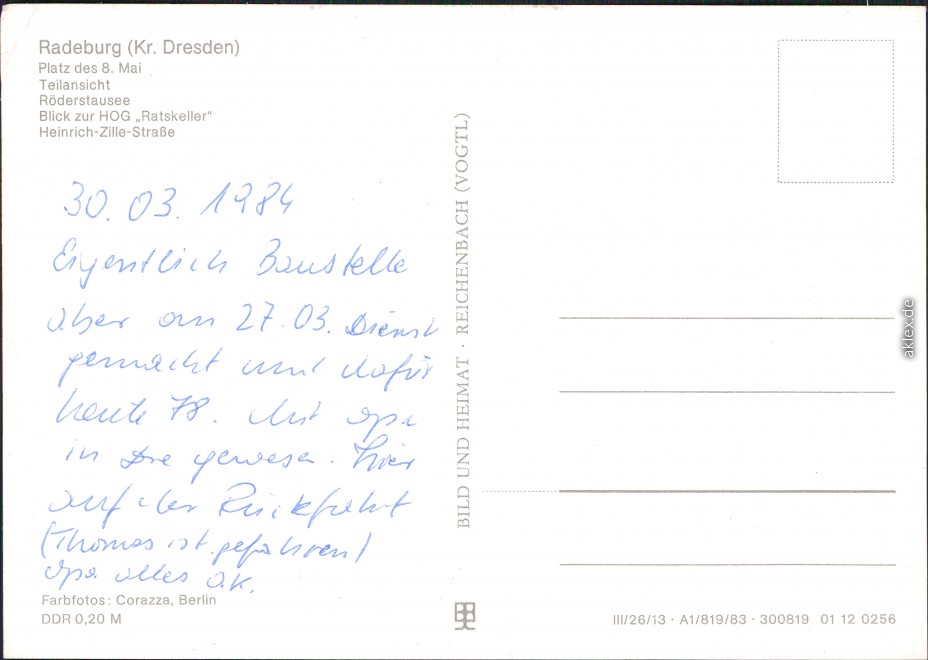 Radeburg (Kr. Dresden)
Platz des 8. Mai
Teilansicht
Röderstausee
Blick zur HOG „Ratskeller“
Heinrich-Zille-Straße
30. 03. 1984
Eigentlich Baustelle
aber am 27. 03. Dienst
gemacht und dafür
heute 78. Mit opa
in Dre gewesen. Hier
auf der Rückfahrt
(Thomas ist gefahren)
opa alles o.k.
Farbfotos: Corazza, Berlin
DDR 0,20 M
BILD UND HEIMAT · REICHENBACH (VOGTL)
III/26/13 · A1/819/83 · 300819 01 12 0256
aklex.de